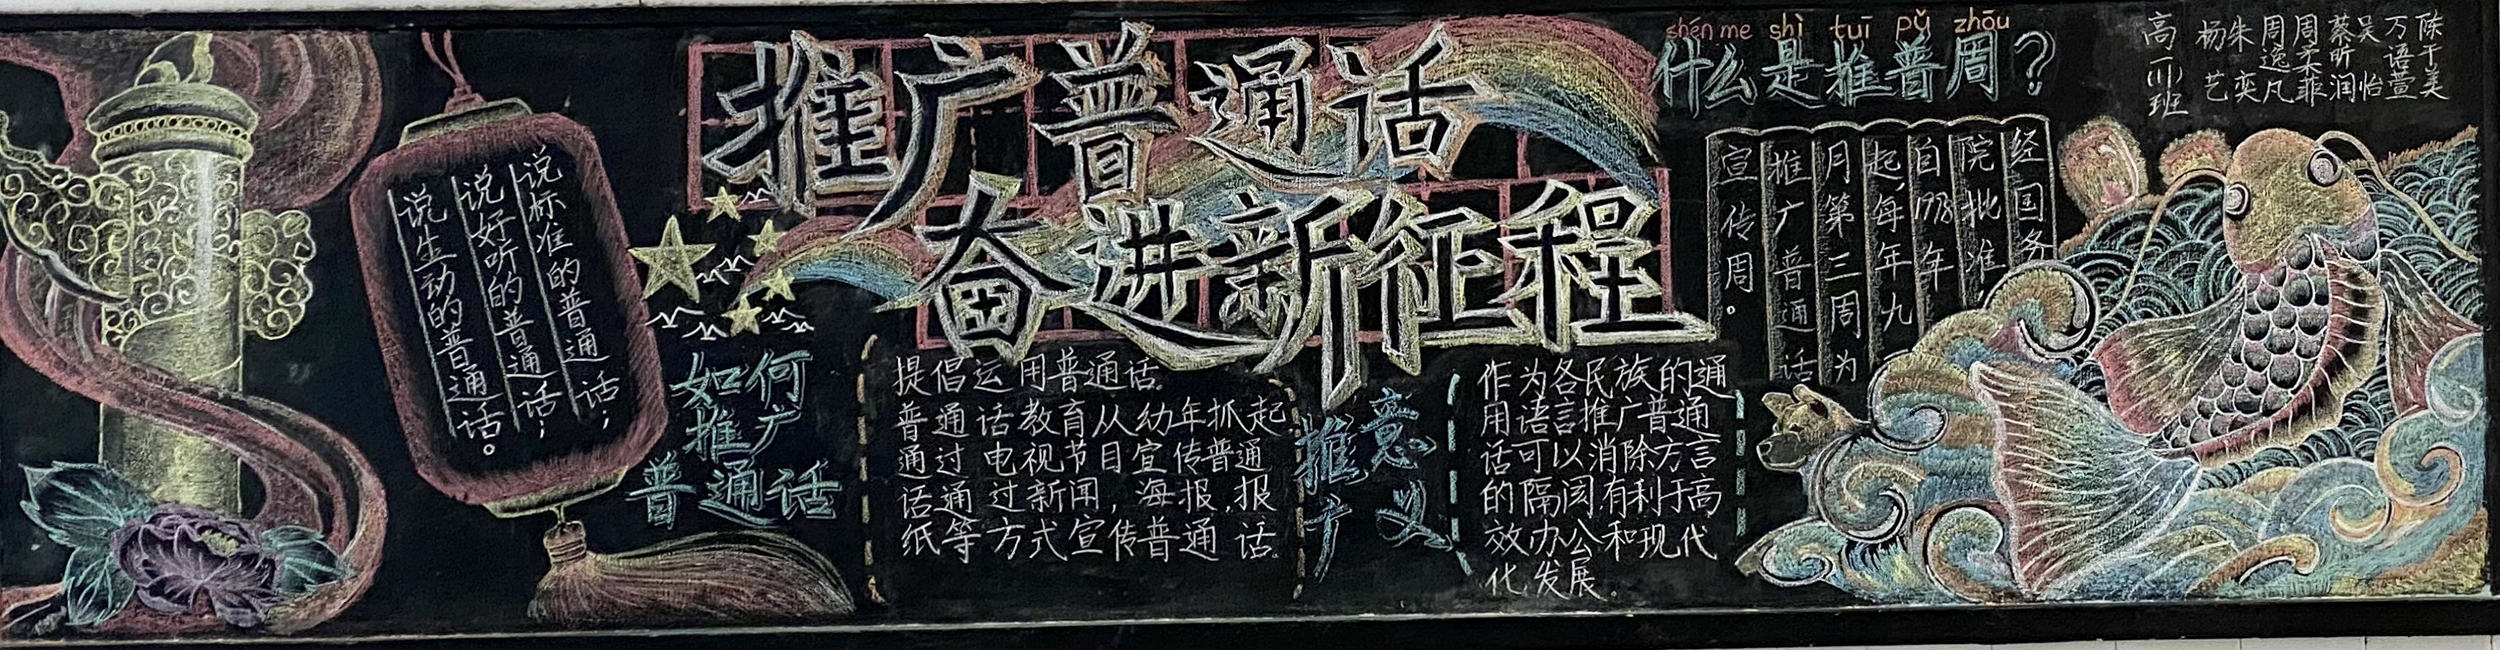 推广普通话
奋进新征程
说标准的普通话；
说好听的普通话；
说生动的普通话。
如何
推广
普通话
提倡运用普通话
普通话教育从幼年抓起
通过电视节目宣传普通
话通过新闻，海报，报
纸等方式宣传普通话
推广
意义
作为各民族的通
用语言推广普通
话可以消除方言
的隔阂有利于高
效办公和现代
化发展。
shén me shì tuī pǔ zhōu
什么是推普周？
经国务
院批准
自1998年
起，每年九
月第三周为
推广普通话
宣传周。
高一(1)班
陈于美
万语萱
吴怡
蔡昕润
周柔菲
周逸凡
朱奕
杨艺